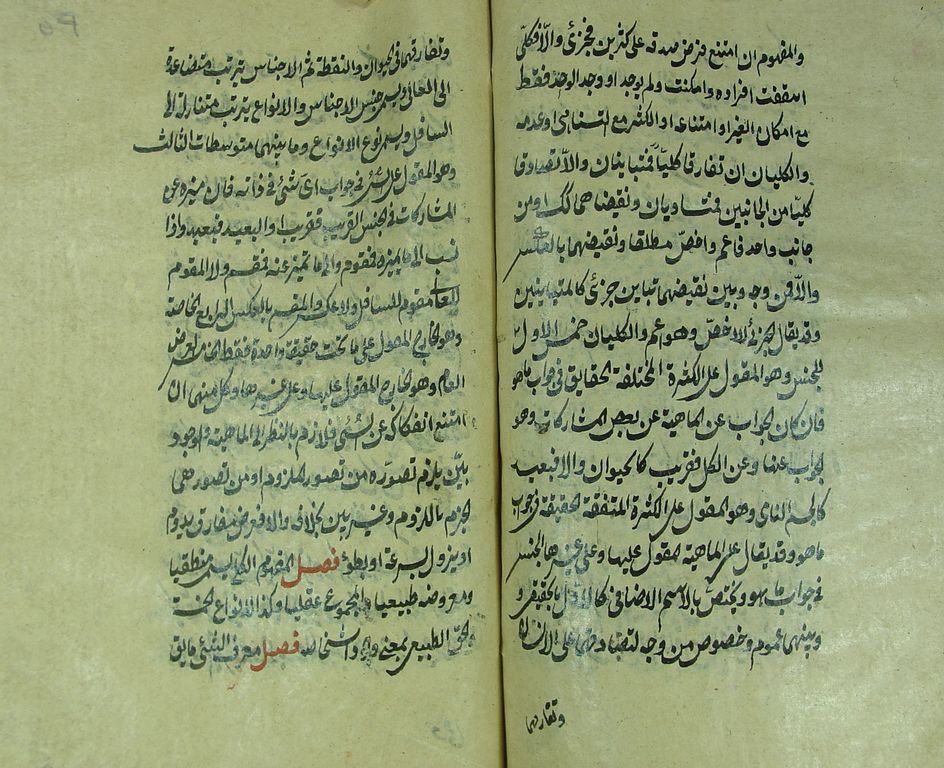 والمفهوم ان امتنع فرض صدقه على كثيرين فجزئى والا فكلى
امتنعت افراده وامكنت ولم يوجد او وجد الواحد فقط
مع امكان الغير او امتناعه او الكثير مع التناهى او عدمه
والكليان ان تفارقا كليا فمتباينان والا فان تصادقا
كليا من الجانبين فمتساويان ونقيضاهما كذلك او من
جانب واحد فاعم واخص مطلقا ونقيضهما بالعكس
والا فمن وجه وبين نقيضهما تباين جزئى كالمتباينين
وقد يقال الجزئى للاخص وهو اعم والكليات خمس الاول
الجنس وهو المقول على الكثرة المختلفة الحقايق فى جواب ما هو
فان كان الجواب عن الماهية عن بعض المشاركات وهو
الجواب عنها وعن الكل فقريب كالحيوان والا فبعيد
كالجسم النامى وهو المقول على الكثرة المتفقة الحقيقة فى جواب
ما هو وقد يقال على الماهية المقول عليها وعلى غيرها الجنس
فى جواب ما هو ويختص بالاسم الاضافى كالاول بالحقيقى و
وبينهما عموم وخصوص من وجه لتصادقهما على الانسان
وتفارقهما
وتفارقهما فى الحيوان والنقطة ثم الاجناس يترتب متصاعدة
الى العالى ويسمى جنس الاجناس والانواع يترتب متنازلة الى
السافل ويسمى نوع الانواع وما بينهما متوسطات الثالث
وهو المقول على الشئ فى جواب اى شئ فى ذاته فان ميزه عن
المشاركات فى الجنس القريب فقريب او البعيد فبعيد واذا
نسب الى ما يميزه فمقوم والى ما تميز عنه فمقسم والمقوم
للعالى مقوم للسافل ولا عكس والمقسم بالعكس الرابع الخاصة
وهو الخارج المقول على ما تحت حقيقة واحدة فقط الخامس العرض
العام وهو الخارج المقول عليها وعلى غيرها وكل منهما ان
امتنع انفكاكه عن الشئ فلازم بالنظر الى الماهية او الوجود
بين يلزم تصوره من تصور الملزوم او من تصورهما
الجزم باللزوم وغير بين بخلافه والا فعرض مفارق يدوم
او يزول بسرعة او بطؤ فصل المفهوم الكلى يسمى منطقيا
ومعروضه طبيعيا والمجموع عقليا وكذا الانواع الخمسة
والحق الطبيعى بمعنى وجود اشخاصه فصل معرف الشئ ما يقال